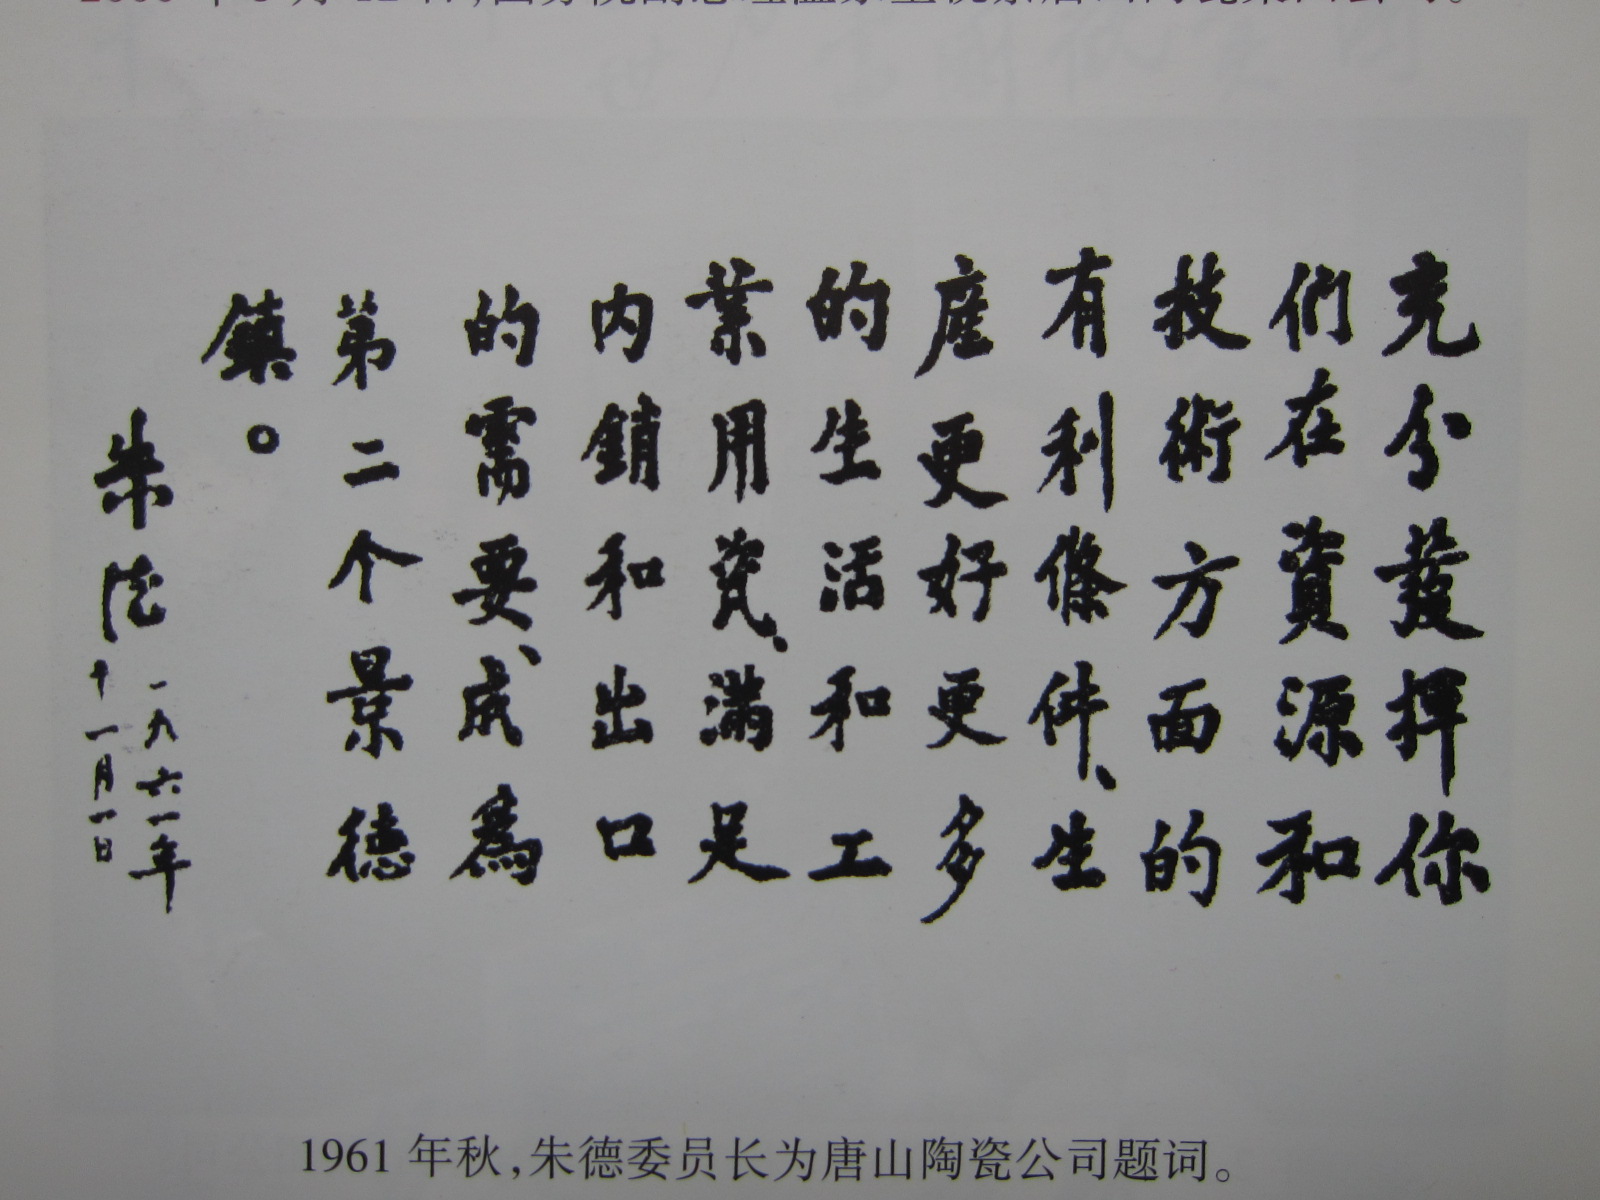 充分發揮你
們在資源和
技術方面的
有利條件、生
産更好更多
的生活和工
業用瓷、滿足
内銷和出口
的需要、成爲
第二个景德
鎮。
朱德
一九六一年
十一月一日
1961 年秋,朱德委员长为唐山陶瓷公司题词。